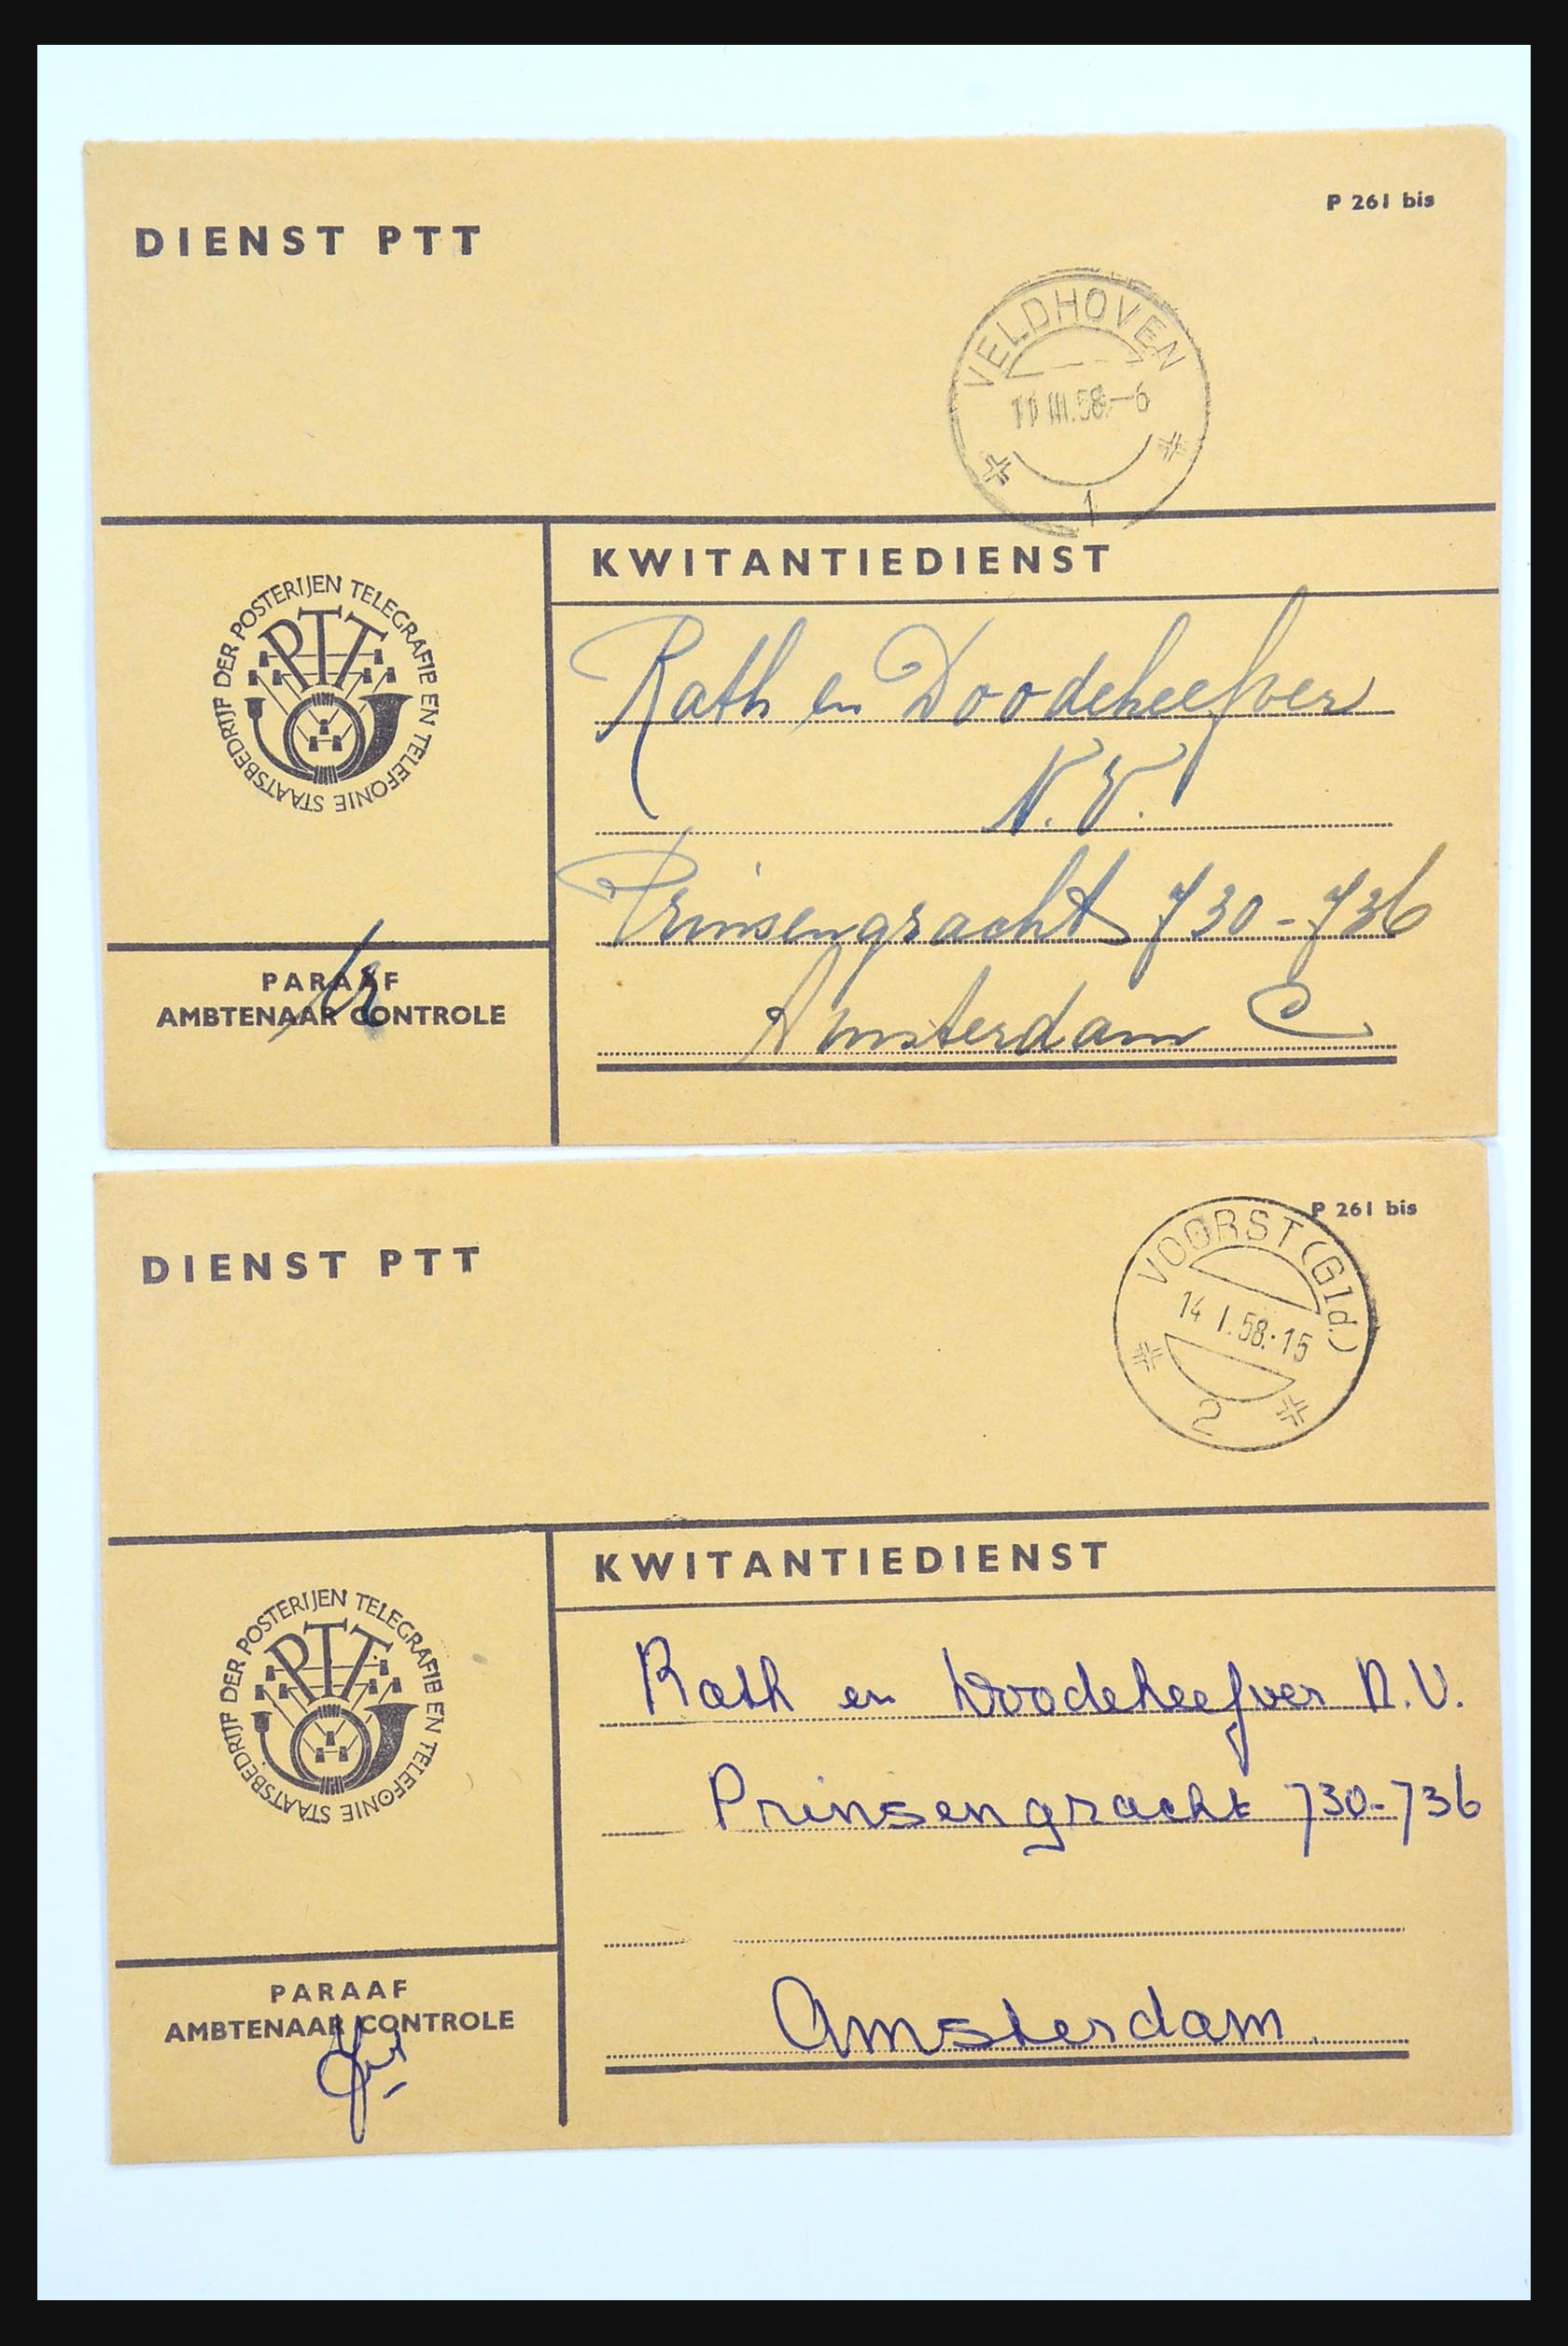 DIENST PTT
P 261 bis
VELDHOVEN
III.58.-6
1
KWITANTIEDIENST
STAATSBEDRIJF DER POSTERIJEN TELEGRAFIE EN TELEFONIE
PTT
Rath en Doodeheefver
N.V.
Prinsengracht 730-736
Amsterdam C
PARAAF
AMBTENAAR CONTROLE
DIENST PTT
P 261 bis
VOORST (Gld.)
14 I.58.-15
2
KWITANTIEDIENST
STAATSBEDRIJF DER POSTERIJEN TELEGRAFIE EN TELEFONIE
PTT
Rath en Doodeheefver N.V.
Prinsengracht 730-736
Amsterdam.
PARAAF
AMBTENAAR CONTROLE